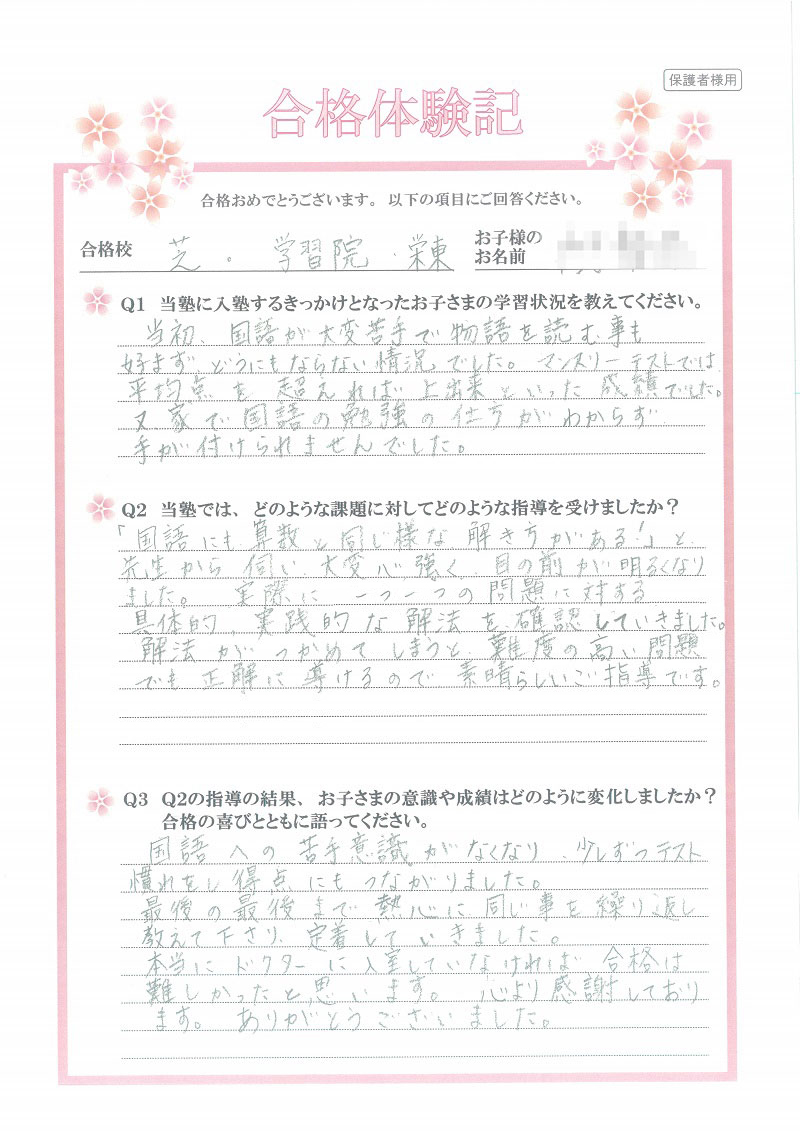 保護者様用
合格体験記
合格おめでとうございます。以下の項目にご回答ください。
合格校 芝・学習院・栄東
お子様の
お名前
Q1 当塾に入塾するきっかけとなったお子さまの学習状況を教えてください。
当初、国語が大変苦手で物語を読む事も
好まず、どうにもならない情況でした。マンスリーテストでは
平均点を超えれば上出来といった成績でした。
又、家で国語の勉強の仕方がわからず
手が付けられませんでした。
Q2 当塾では、どのような課題に対してどのような指導を受けましたか？
「国語にも算数と同じ様な解き方がある！」と
先生から伺い、大変心強く、目の前が明るくなり
ました。 実際に一つ一つの問題に対する
具体的、実践的な解法を確認していきました。
解法がつかめてしまうと、難度の高い問題
でも正解に導けるので素晴らしいご指導です。
Q3 Q2の指導の結果、お子さまの意識や成績はどのように変化しましたか？
合格の喜びとともに語ってください。
国語への苦手意識がなくなり、少しずつテスト
慣れをし得点にもつながりました。
最後の最後まで熱心に同じ事を繰り返し
教えて下さり、定着していきました。
本当にドクターに入室していなければ合格は
難しかったと思います。 心より感謝しており
ます。 ありがとうございました。